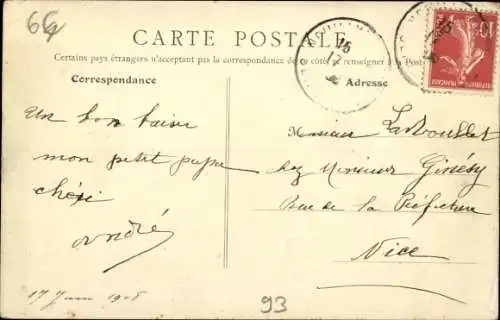 66
CARTE POSTALE
Certains pays étrangers n'acceptant pas la correspondance de ce côté, se renseigner à la Poste
Correspondance
Adresse
Un bon baiser
mon petit papa
chéri
André
17 Juin 1908
Monsieur
chez Monsieur
Rue de la Préfecture
Nice
93
10